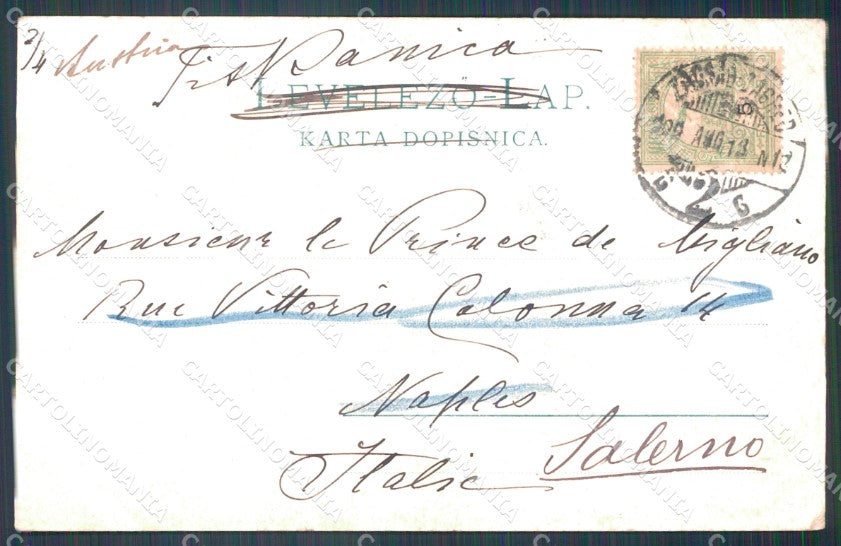 2/4 Austria
LEVELEZŐ-LAP.
KARTA DOPISNICA.
5
AUG 13
Monsieur le Prince de Migliano
Rue Vittoria Colonna 14
Naples
Italie
Salerno
CARTOLINOMANIA